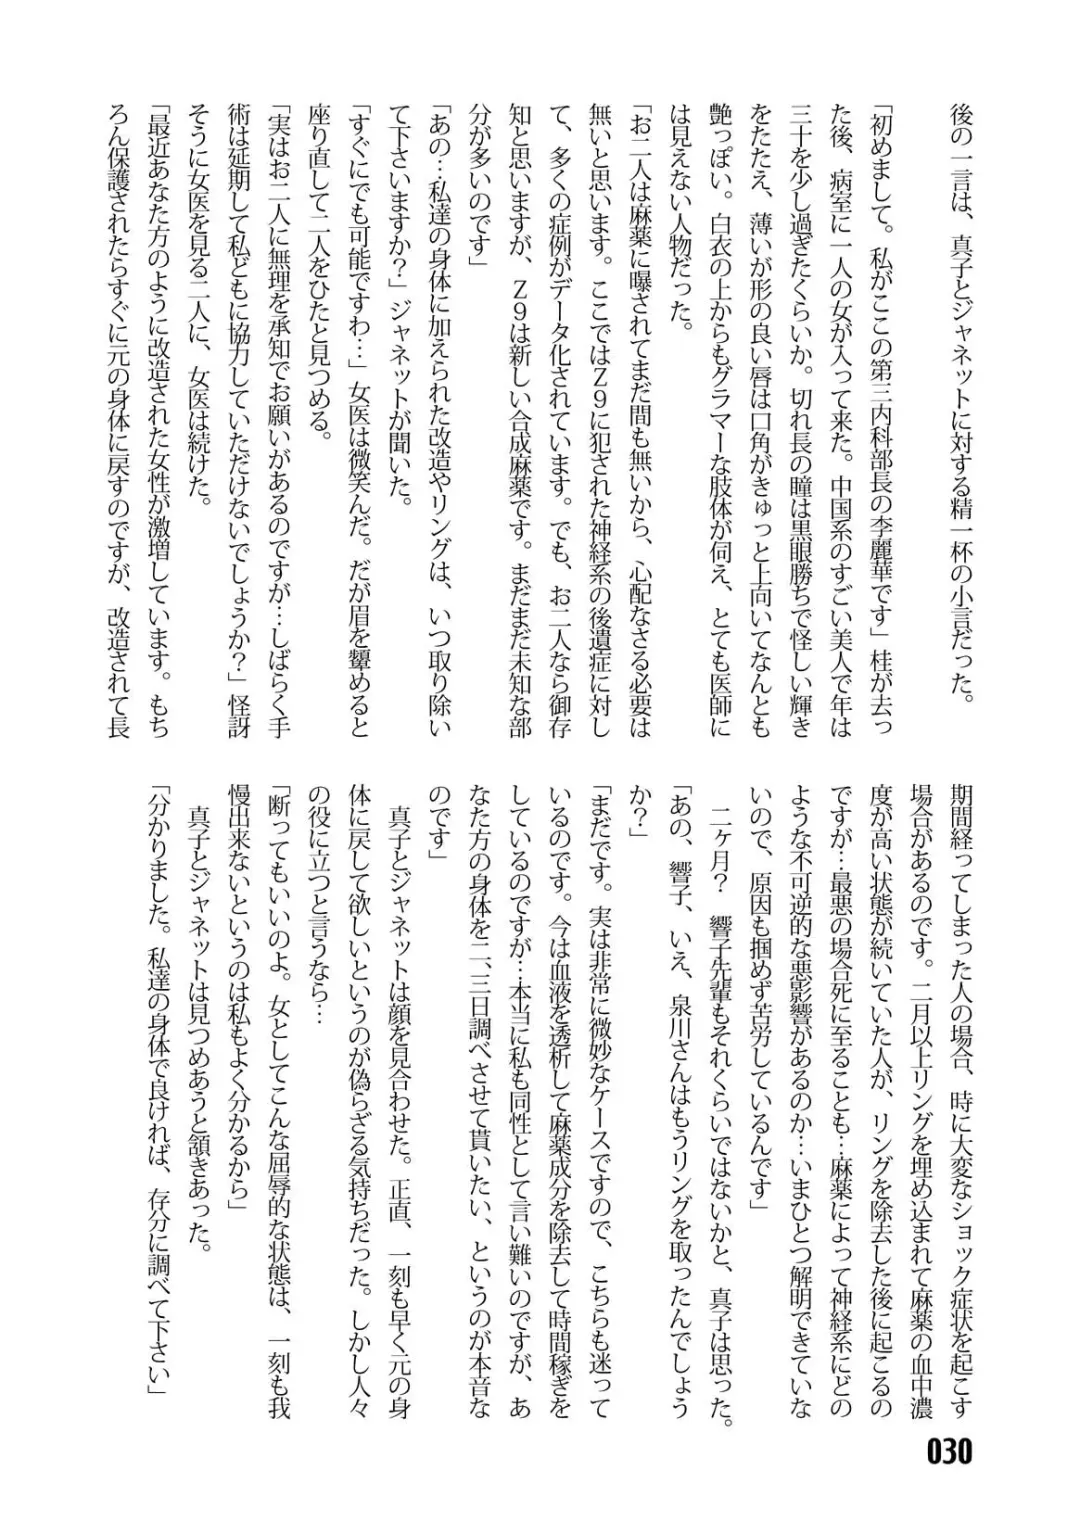 後の一言は、真子とジャネットに対する精一杯の小言だった。
「初めまして。私がここの第三内科部長の李麗華です」桂が去っ
た後、病室に一人の女が入って来た。中国系のすごい美人で年は
三十を少し過ぎたくらいか。切れ長の瞳は黒眼勝ちで怪しい輝き
をたたえ、薄いが形の良い唇は口角がきゅっと上向いてなんとも
艶っぽい。白衣の上からもグラマーな肢体が伺え、とても医師に
は見えない人物だった。
「お二人は麻薬に曝されてまだ間も無いから、心配なさる必要は
無いと思います。ここではZ9に犯された神経系の後遺症に対し
て、多くの症例がデータ化されています。でも、お二人なら御存
知と思いますが、Z9は新しい合成麻薬です。まだまだ未知な部
分が多いのです」
「あの…私達の身体に加えられた改造やリングは、いつ取り除い
て下さいますか？」ジャネットが聞いた。
「すぐにでも可能ですわ…」女医は微笑んだ。だが眉を顰めると
座り直して二人をひたと見つめる。
「実はお二人に無理を承知でお願いがあるのですが…しばらく手
術は延期して私どもに協力していただけないでしょうか？」怪訝
そうに女医を見る二人に、女医は続けた。
「最近あなた方のように改造された女性が激増しています。もち
ろん保護されたらすぐに元の身体に戻すのですが、改造されて長
期間経ってしまった人の場合、時に大変なショック症状を起こす
場合があるのです。二月以上リングを埋め込まれて麻薬の血中濃
度が高い状態が続いていた人が、リングを除去した後に起こるの
ですが…最悪の場合死に至ることも…麻薬によって神経系にどの
ような不可逆的な悪影響があるのか…いまひとつ解明できていな
いので、原因も掴めず苦労しているんです」
二ヶ月？　響子先輩もそれくらいではないかと、真子は思った。
「あの、響子、いえ、泉川さんはもうリングを取ったんでしょう
か？」
「まだです。実は非常に微妙なケースですので、こちらも迷って
いるのです。今は血液を透析して麻薬成分を除去して時間稼ぎを
しているのですが…本当に私も同性として言い難いのですが、あ
なた方の身体を二、三日調べさせて貰いたい、というのが本音な
のです」
真子とジャネットは顔を見合わせた。正直、一刻も早く元の身
体に戻して欲しいというのが偽らざる気持ちだった。しかし人々
の役に立つと言うなら…
「断ってもいいのよ。女としてこんな屈辱的な状態は、一刻も我
慢出来ないというのは私もよく分かるから」
真子とジャネットは見つめあうと頷きあった。
「分かりました。私達の身体で良ければ、存分に調べて下さい」
030